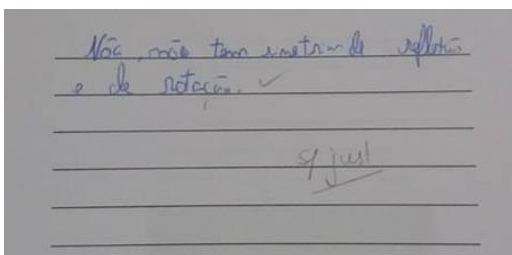 Não, não tem simetria de reflexão
e de rotação. ✓
s/ just